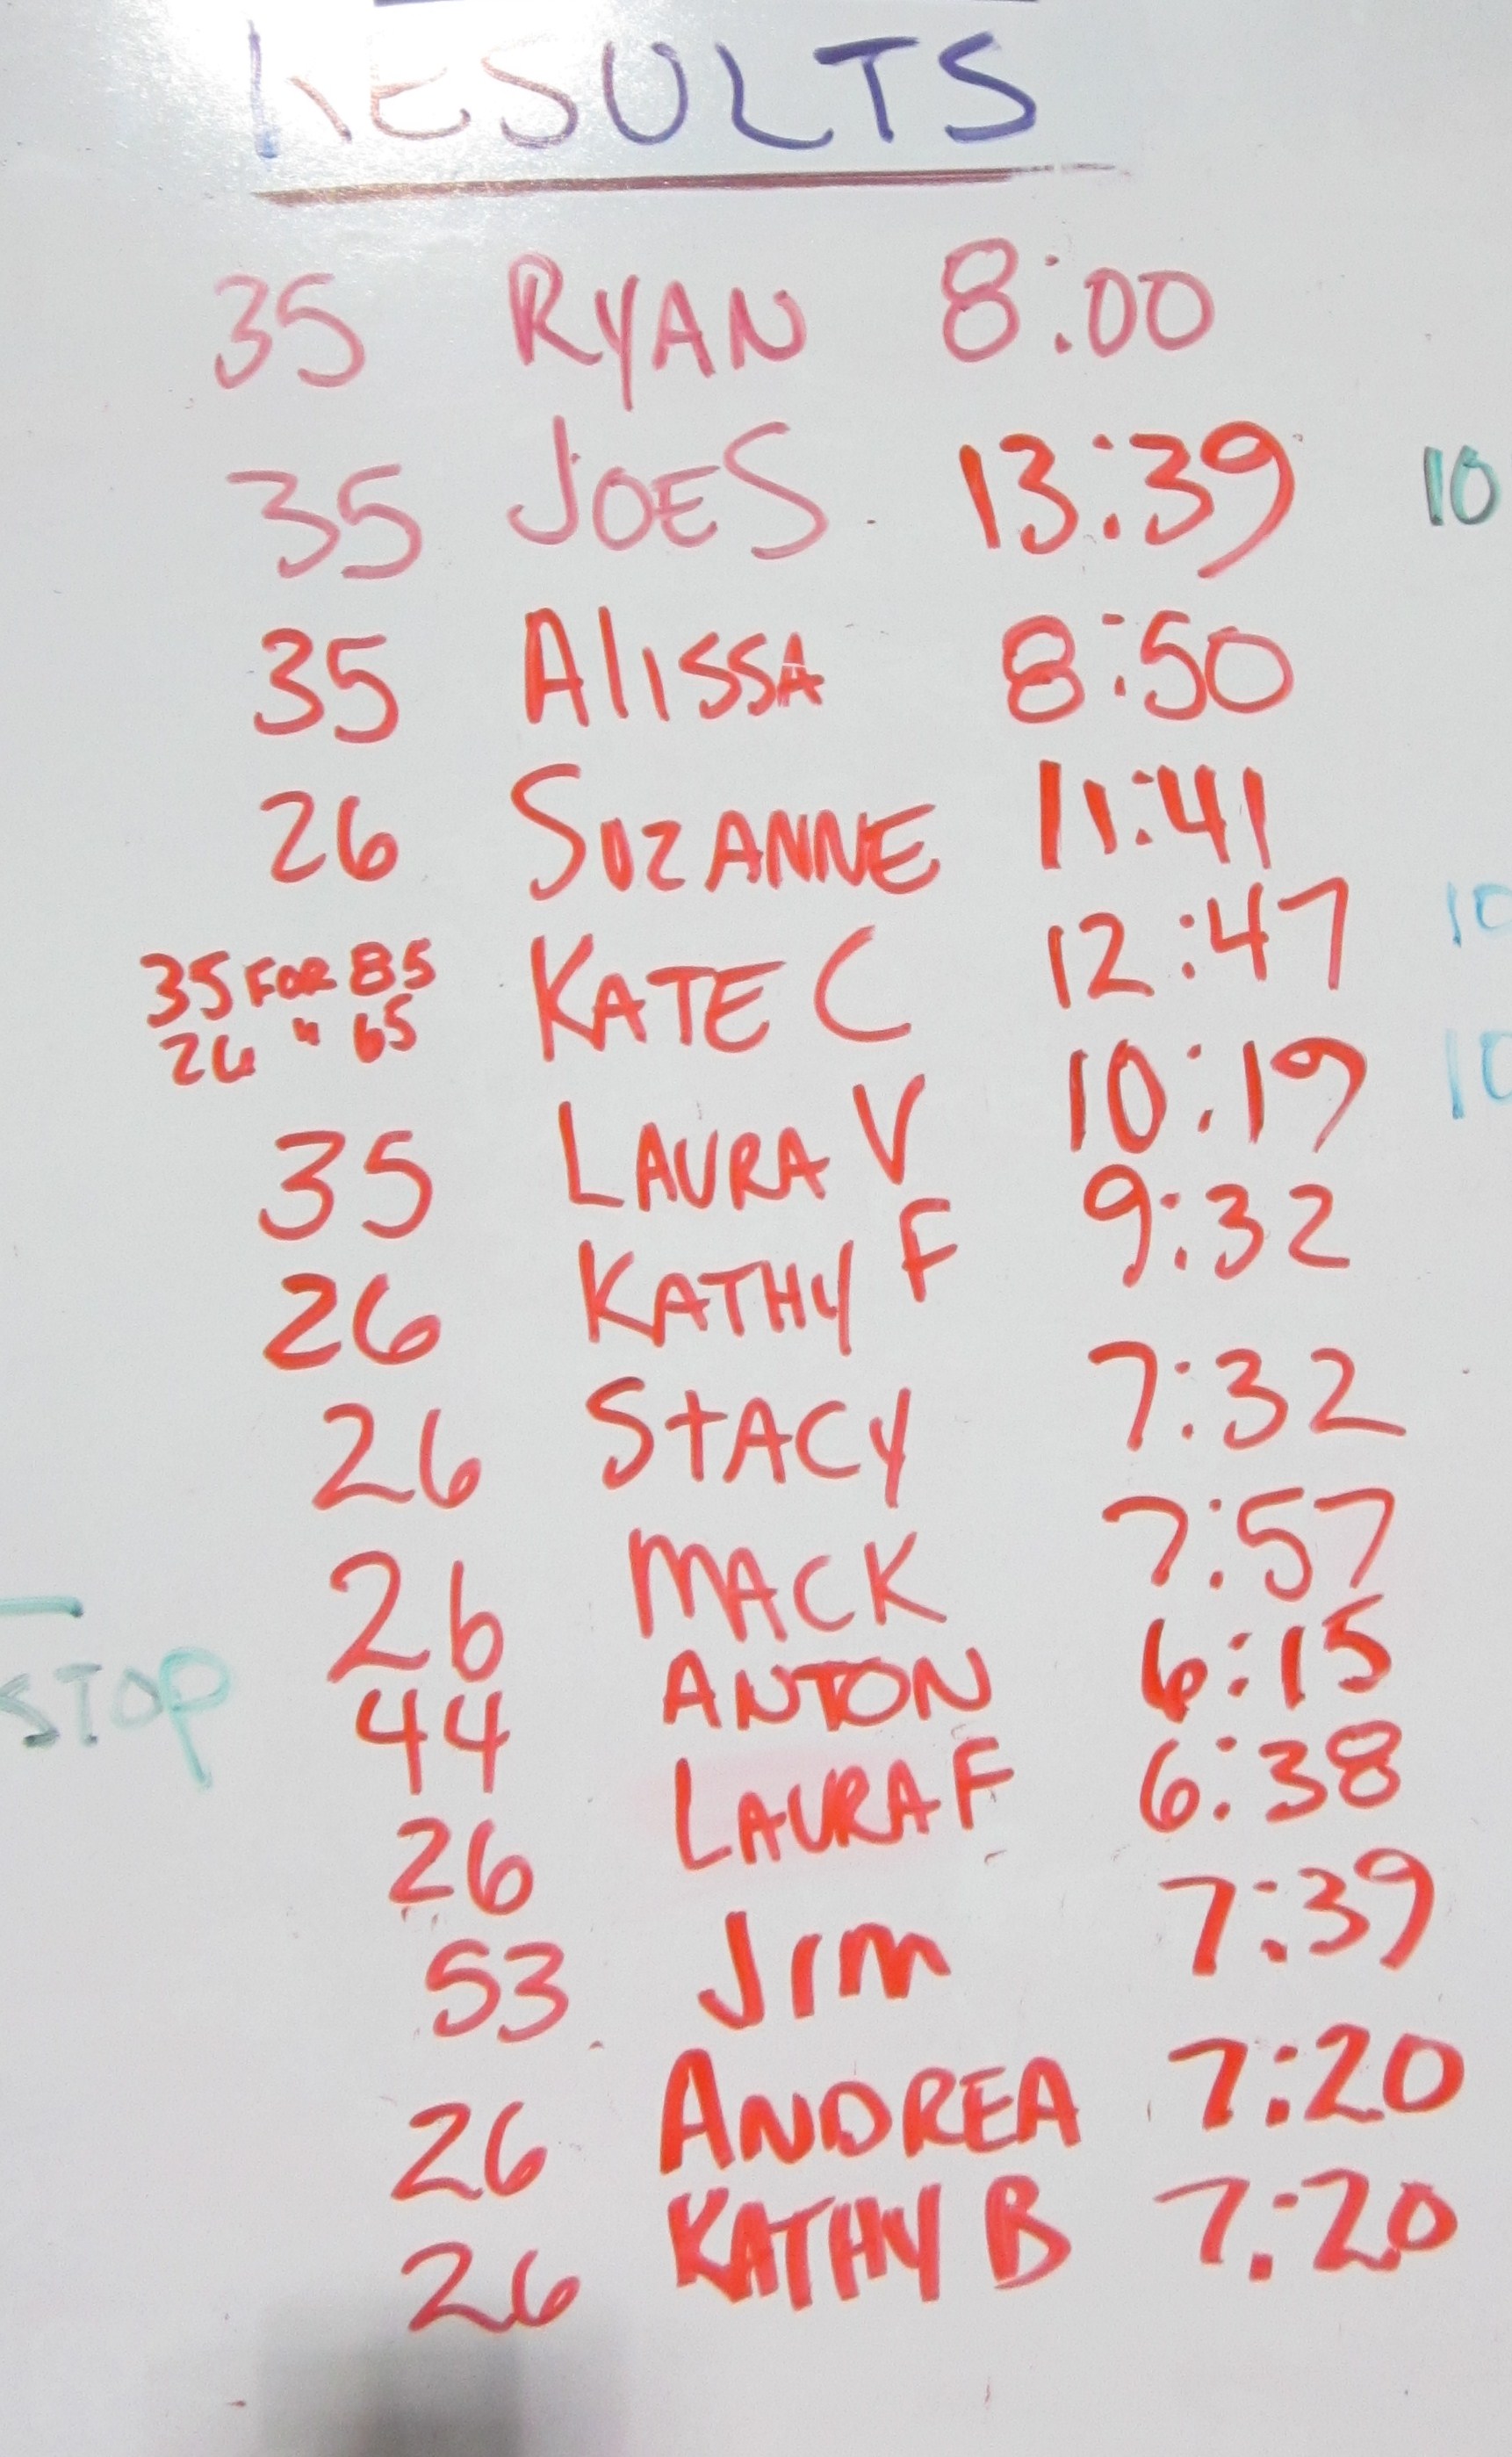 RESULTS
35 RYAN 8:00
35 JOE S 13:39 10
35 ALISSA 8:50
26 SUZANNE 11:41
35 FOR 85 KATE C 12:47 10
26 " 65
35 LAURA V 10:19 10
26 KATHY F 9:32
26 STACY 7:32
26 MACK 7:57
STOP
44 ANTON 6:15
26 LAURA F 6:38
53 JIM 7:39
26 ANDREA 7:20
26 KATHY B 7:20